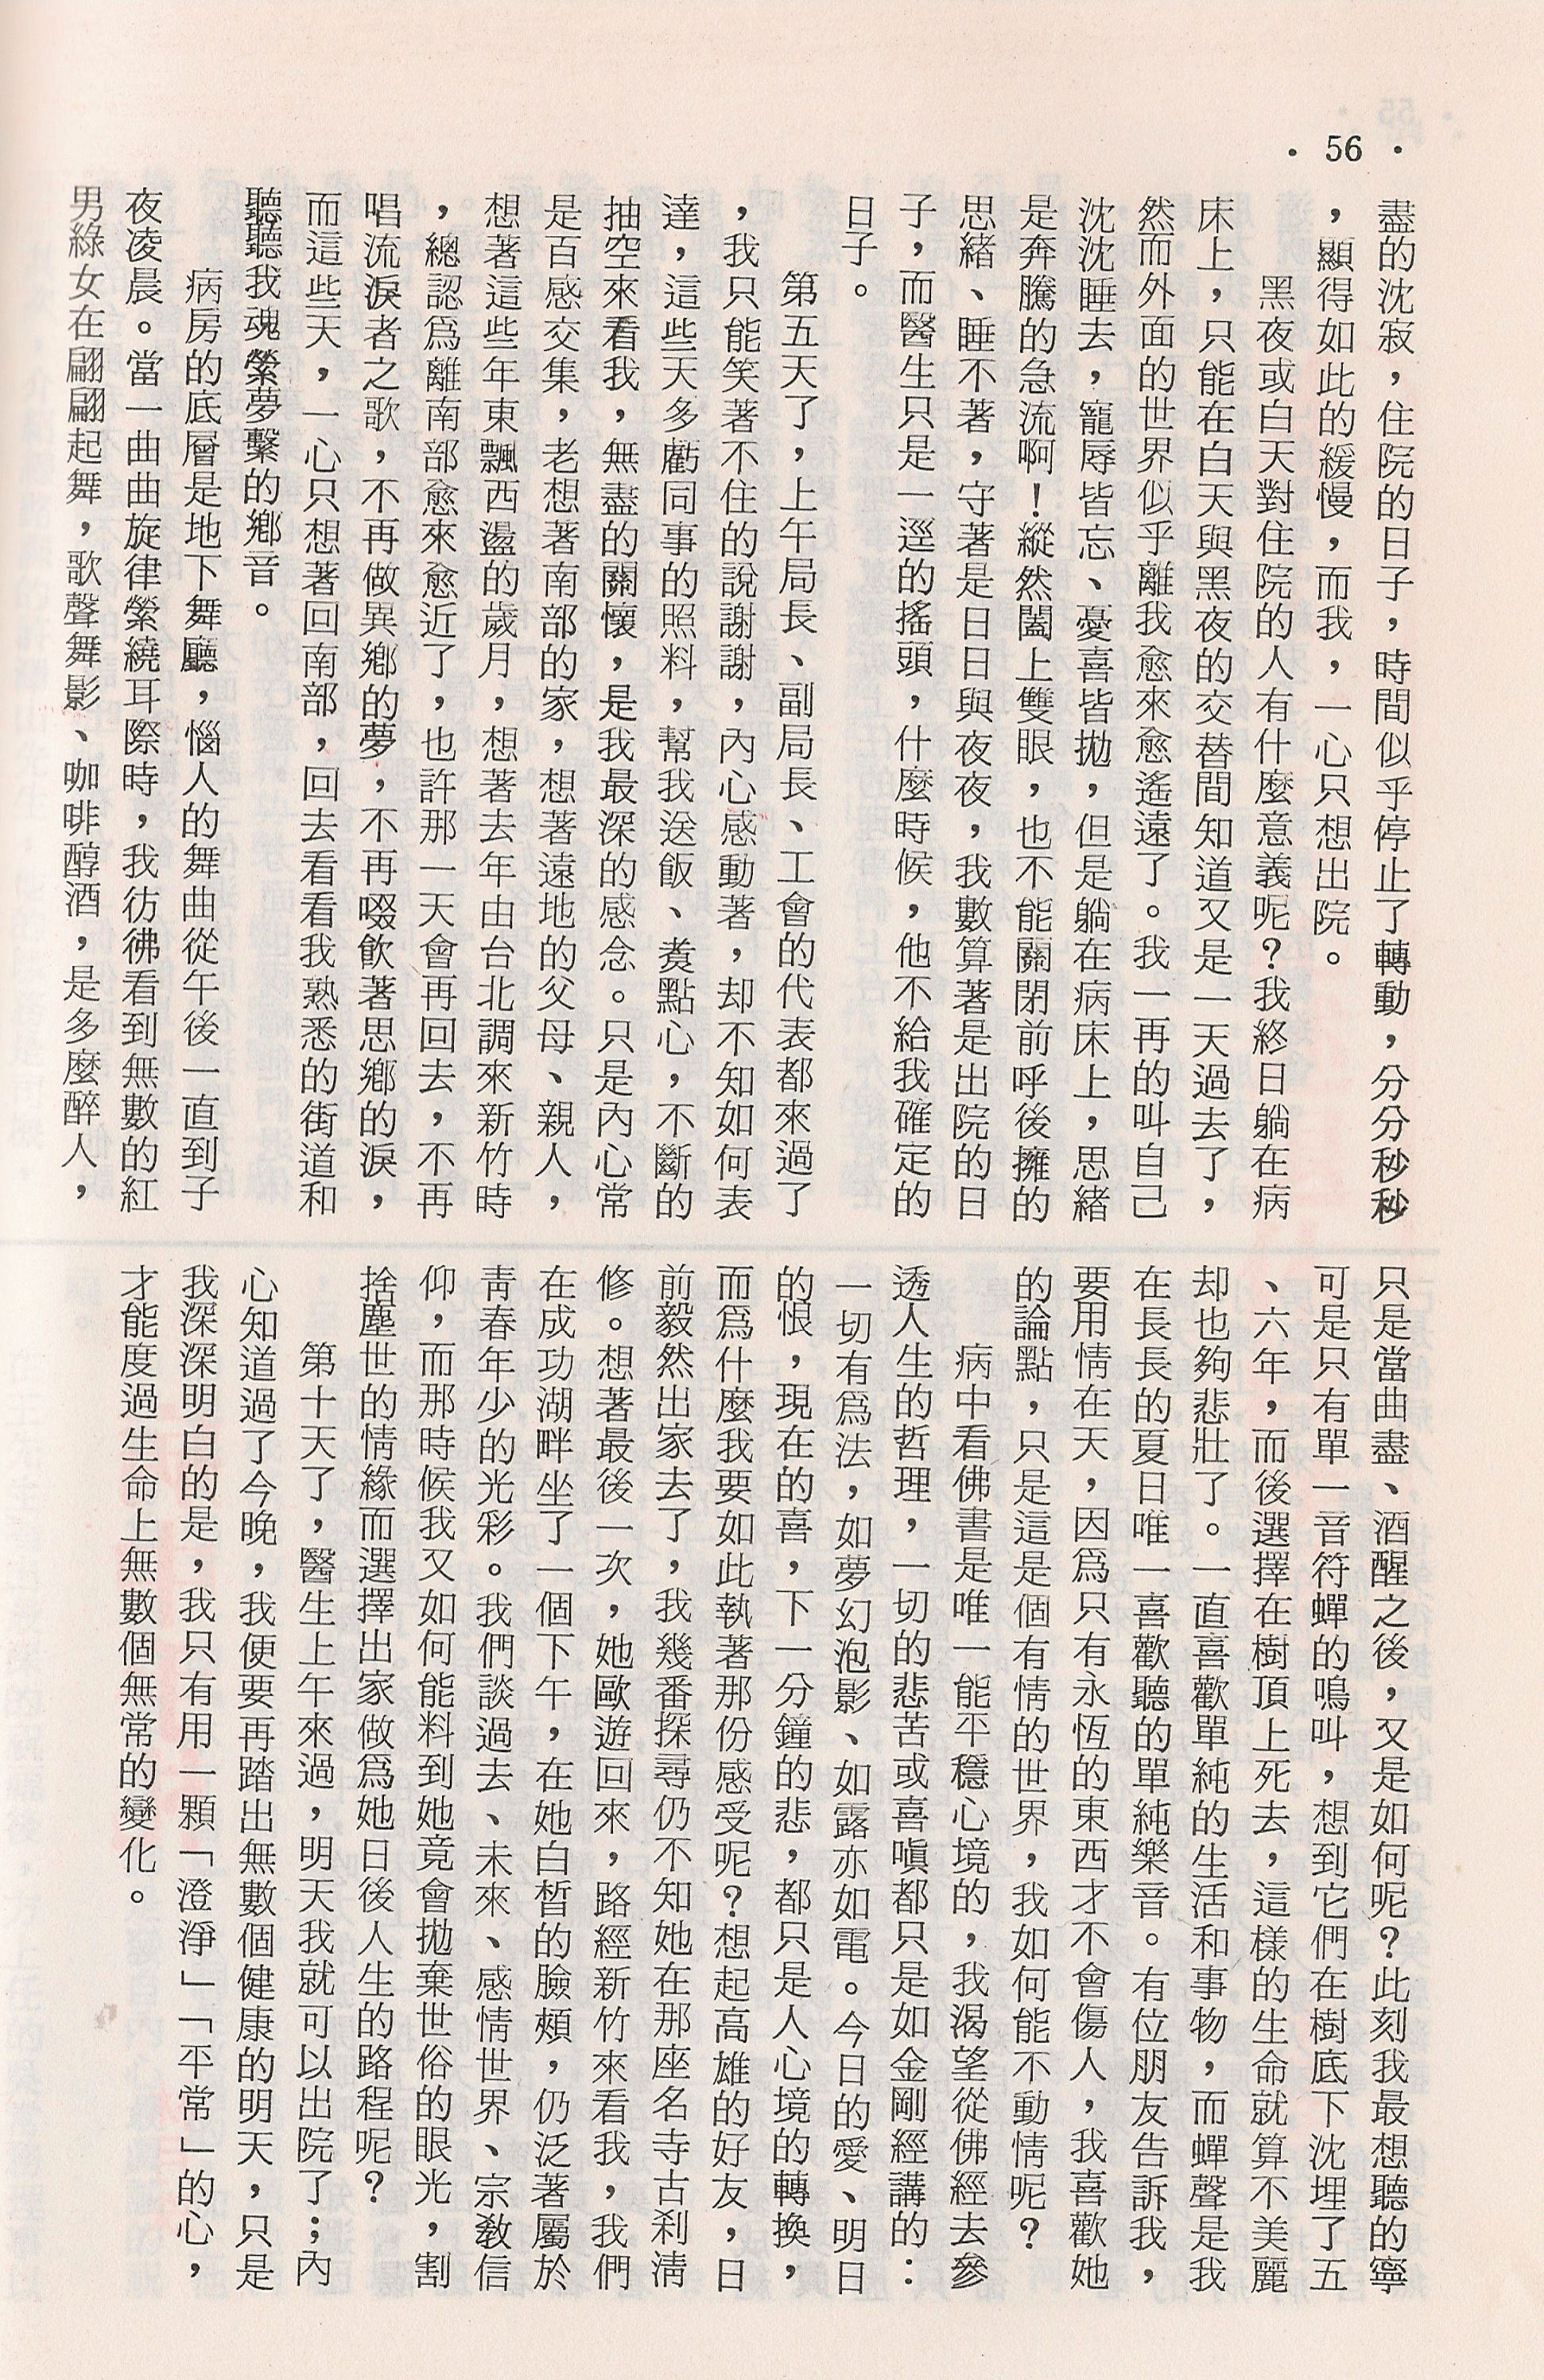 · 56 ·
盡的沈寂，住院的日子，時間似乎停止了轉動，分分秒秒
，顯得如此的緩慢，而我，一心只想出院。
黑夜或白天對住院的人有什麼意義呢？我終日躺在病
床上，只能在白天與黑夜的交替間知道又是一天過去了，
然而外面的世界似乎離我愈來愈遙遠了。我一再的叫自己
沈沈睡去，寵辱皆忘、憂喜皆拋，但是躺在病床上，思緒
是奔騰的急流啊！縱然闔上雙眼，也不能關閉前呼後擁的
思緒、睡不著，守著是日日與夜夜，我數算著是出院的日
子，而醫生只是一逕的搖頭，什麼時候，他不給我確定的
日子。
第五天了，上午局長、副局長、工會的代表都來過了
，我只能笑著不住的說謝謝，內心感動著，却不知如何表
達，這些天多虧同事的照料，幫我送飯、煑點心，不斷的
抽空來看我，無盡的關懷，是我最深的感念。只是內心常
是百感交集，老想著南部的家，想著遠地的父母、親人，
想著這些年東飄西盪的歲月，想著去年由台北調來新竹時
，總認爲離南部愈來愈近了，也許那一天會再回去，不再
唱流淚者之歌，不再做異鄉的夢，不再啜飲著思鄉的淚，
而這些天，一心只想著回南部，回去看看我熟悉的街道和
聽聽我魂縈夢繫的鄉音。
病房的底層是地下舞廳，惱人的舞曲從午後一直到子
夜凌晨。當一曲曲旋律縈繞耳際時，我彷彿看到無數的紅
男綠女在翩翩起舞，歌聲舞影、咖啡醇酒，是多麼醉人，
只是當曲盡、酒醒之後，又是如何呢？此刻我最想聽的寧
可是只有單一音符蟬的鳴叫，想到它們在樹底下沈埋了五
、六年，而後選擇在樹頂上死去，這樣的生命就算不美麗
却也夠悲壯了。一直喜歡單純的生活和事物，而蟬聲是我
在長長的夏日唯一喜歡聽的單純樂音。有位朋友告訴我，
要用情在天，因爲只有永恆的東西才不會傷人，我喜歡她
的論點，只是這是個有情的世界，我如何能不動情呢？
病中看佛書是唯一能平穩心境的，我渴望從佛經去參
透人生的哲理，一切的悲苦或喜嗔都只是如金剛經講的：
一切有爲法，如夢幻泡影、如露亦如電。今日的愛、明日
的恨，現在的喜，下一分鐘的悲，都只是人心境的轉換，
而爲什麼我要如此執著那份感受呢？想起高雄的好友，日
前毅然出家去了，我幾番探尋仍不知她在那座名寺古刹淸
修。想著最後一次，她歐遊回來，路經新竹來看我，我們
在成功湖畔坐了一個下午，在她白皙的臉頰，仍泛著屬於
靑春年少的光彩。我們談過去、未來、感情世界、宗敎信
仰，而那時候我又如何能料到她竟會拋棄世俗的眼光，割
捨塵世的情緣而選擇出家做爲她日後人生的路程呢？
第十天了，醫生上午來過，明天我就可以出院了；內
心知道過了今晚，我便要再踏出無數個健康的明天，只是
我深深明白的是，我只有用一顆「澄淨」「平常」的心，
才能度過生命上無數個無常的變化。